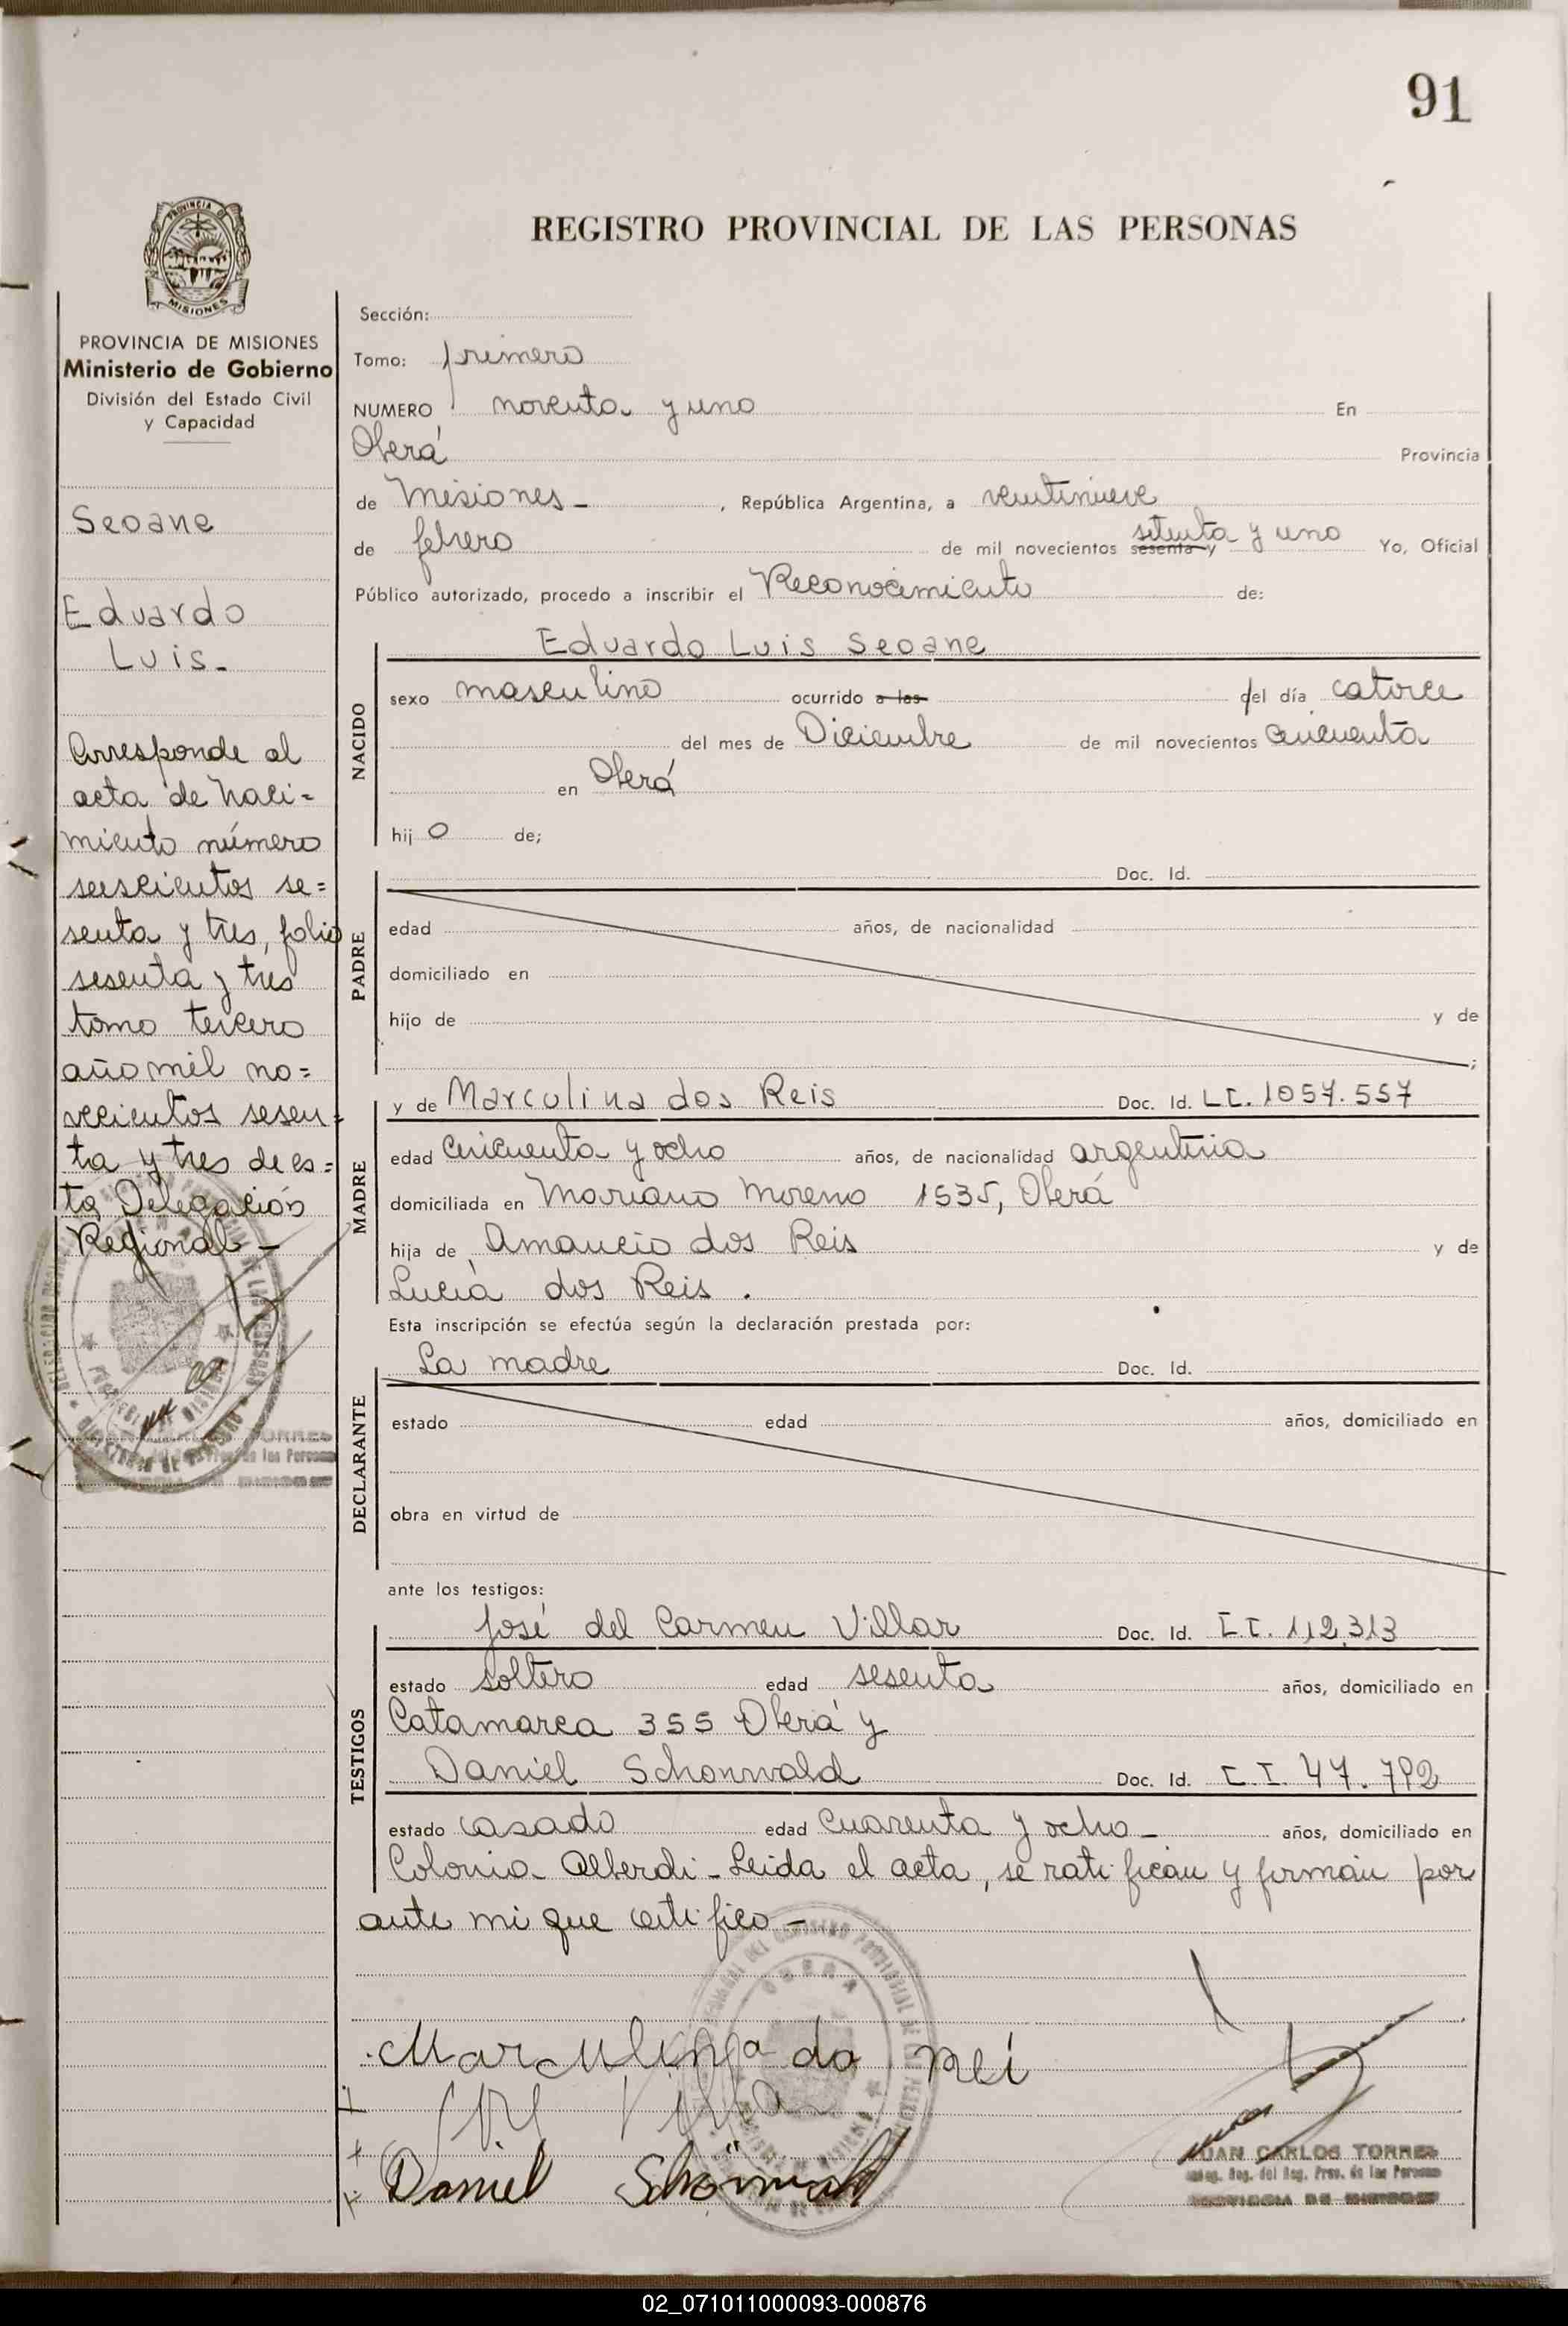 91
REGISTRO PROVINCIAL DE LAS PERSONAS
PROVINCIA DE MISIONES
Ministerio de Gobierno
División del Estado Civil
y Capacidad
Seoane
Eduardo
Luis.-
Corresponde al
acta de naci=
miento número
seiscientos se=
senta y tres, folio
sesenta y tres
tomo tercero
año mil no=
vecientos sesen=
ta y tres de es=
ta Delegación
Regional -
Sección:
Tomo: primero
NUMERO noventa y uno En
Oberá Provincia
de Misiones - , República Argentina, a veintinueve
de febrero de mil novecientos sesenta y setenta y uno Yo, Oficial
Público autorizado, procedo a inscribir el Reconocimiento de:
Eduardo Luis Seoane
NACIDO
sexo masculino ocurrido a las del día catorce
del mes de Diciembre de mil novecientos cincuenta
en Oberá
hijo de;
PADRE
Doc. Id.
edad años, de nacionalidad
domiciliado en
hijo de y de
;
MADRE
y de Marculina dos Reis Doc. Id. L.C. 1057.557
edad cincuenta y ocho años, de nacionalidad argentina
domiciliada en Mariano Moreno 1535, Oberá
hija de Amancio dos Reis y de
Lucía dos Reis .
Esta inscripción se efectúa según la declaración prestada por:
DECLARANTE
La madre Doc. Id.
estado edad años, domiciliado en
obra en virtud de
ante los testigos:
TESTIGOS
José del Carmen Villar Doc. Id. C.I. 112.313
estado soltero edad sesenta años, domiciliado en
Catamarca 355 Oberá y
Daniel Schonwald Doc. Id. C.I. 47.792
estado casado edad cuarenta y ocho - años, domiciliado en
Colonia Alberdi - Leida el acta, se ratifican y firman por
ante mi que certifico -
Marculina do Rei
Daniel Schönwald
JUAN CARLOS TORRES
02_071011000093-000876